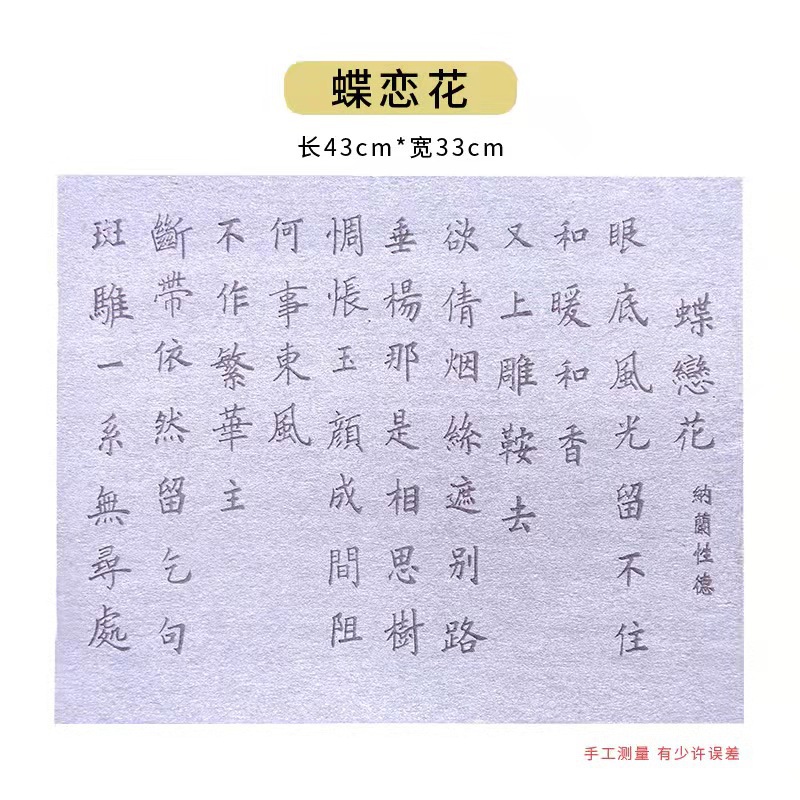 蝶恋花
长43cm*宽33cm
蝶戀花
納蘭性德
眼底風光留不住
和暖和香
又上雕鞍去
欲倩烟絲遮别路
垂楊那是相思樹
惆悵玉顔成間阻
何事東風
不作繁華主
斷帶依然留乞句
斑騅一系無尋處
手工测量 有少许误差